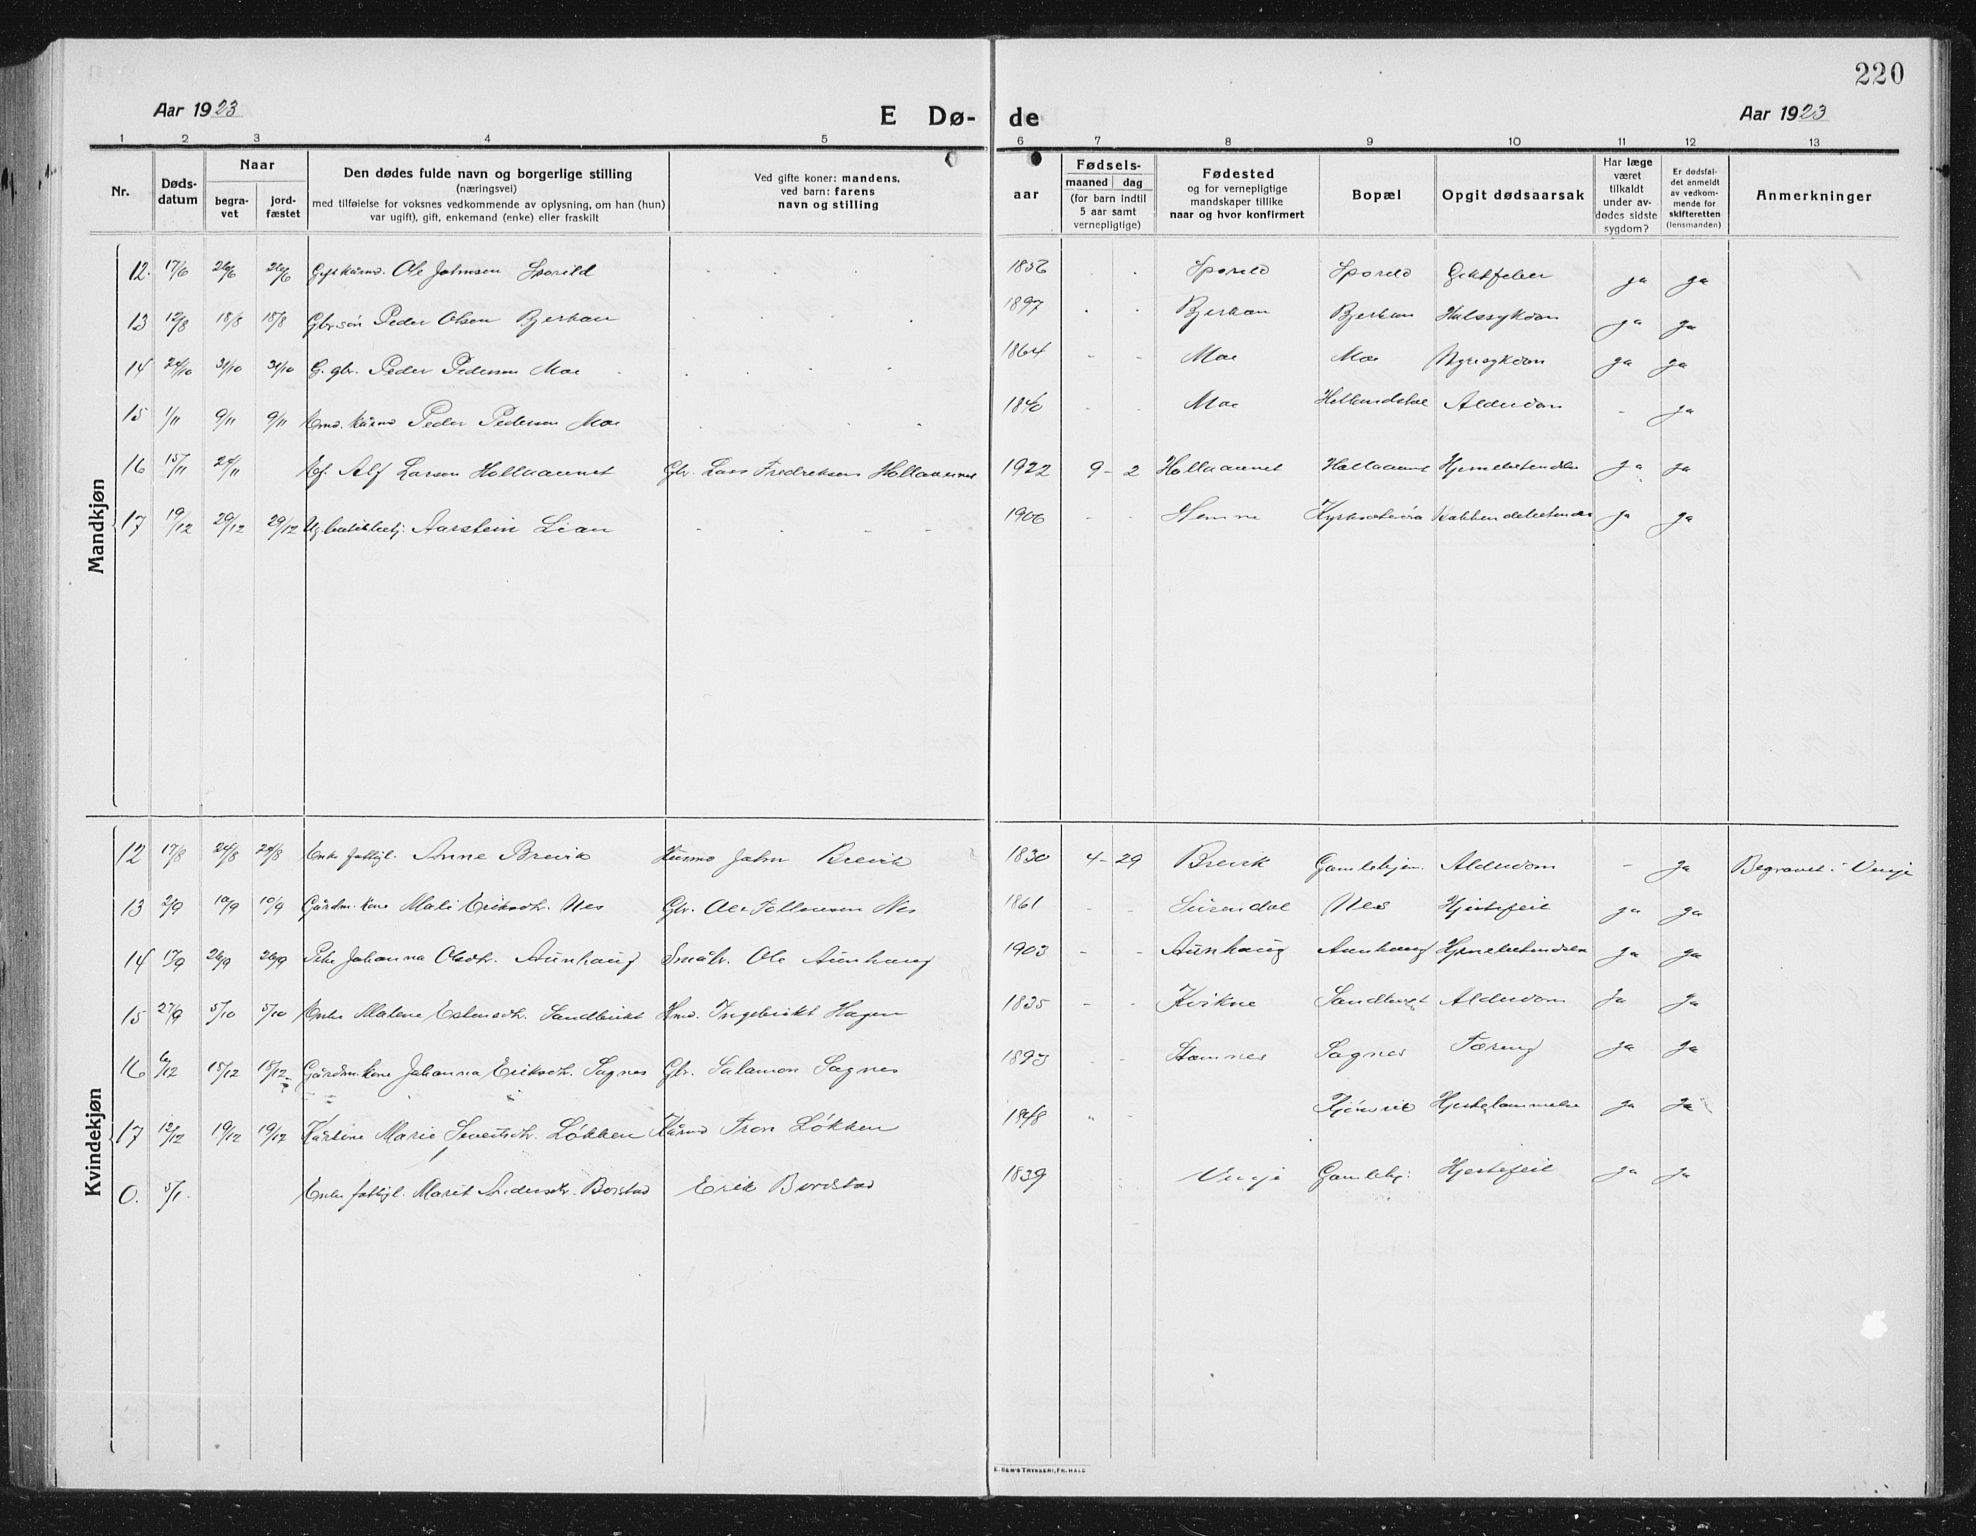 220
Aar 1923 E Dø- de Aar 1923
1 2 3 4 5 6 7 8 9 10 11 12 13
Nr.
Døds-
datum
Naar
begra-
vet
jord-
fæstet
Den dødes fulde navn og borgerlige stilling
(næringsvei)
med tilføielse for voksnes vedkommende av oplysning, om han (hun)
var ugift), gift, enkemand (enke) eller fraskilt
Ved gifte koner: mandens,
ved barn: farens
navn og stilling
aar
Fødsels-
maaned dag
(for barn indtil
5 aar samt
vernepligtige)
Fødested
og for vernepligtige
mandskaper tillike
naar og hvor konfirmert
Bopæl
Opgit dødsaarsak
Har læge
været
tilkaldt
under av-
dødes sidste
sygdom?
Er dødsfal-
det anmeldt
av vedkom-
mende for
skifteretten
(lensmanden)
Anmerkninger
Mandkjøn
12. 17/6 26/6 26/6 Ole Johnsen Sporild 1856 Sporild Sporild ja ja
13 12/8 18/8 18/8 Gbr.søn Peder Olsen Bjerkan 1897 Bjerkan Bjerkan Halssykdom ja ja
14 24/10 31/10 31/10 G. gbr. Peder Pedersen Moe 1864 Moe Moe Nyresykdom ja ja
15 1/11 9/11 9/11 Peder Pedersen Moe 1840 Moe Alderdom - ja
16 15/11 24/11 Alf Larsen Hollaaunet Gbr. Lars Fredriksen Hollaaunet 1922 9 - 2 Hollaaunet Hollaaunet ja ja
17 19/12 29/12 29/12 Aarstein Lian 1906 Hemne ja ja
Kvindekjøn
12 17/8 24/8 24/8 Enke fattigl. Anne Brevik Husmd John Brevik 1830 4 - 29 Brevik Alderdom - ja Begravet i Vinje
13 2/9 10/9 10/9 Gårdm. kone Mali Eriksdtr. Nes Gbr. Ole Nes 1861 Surendal Nes Hjertefeil ja ja
14 17/9 26/9 26/9 Pike Johanna Olsdtr. Aunhaug Småbr. Ole Aunhaug 1903 Aunhaug Aunhaug ja ja
15 27/9 5/10 5/10 Enke Malene Estensdtr. Sandbukt Hmd. Ingebrikt Hagen 1835 Kvikne Sandbukt Alderdom Ja Ja
16 6/12 18/12 18/12 Gårdm. kone Johanna Eriksdtr. Sagnes Gbr. Salamon Sagnes 1893 Stamnes Sagnes Tæring ja ja
17 12/12 19/12 19/12 Marie Sivertsdtr. Løkken Tron Løkken 1848 ja ja
0. 5/1. Enke fattigl. Marit Andersdtr. Borstad Erik Borstad 1839 Vinje Hjertefeil ja ja
E. SEM'S TRYKKERI, FR. HALD